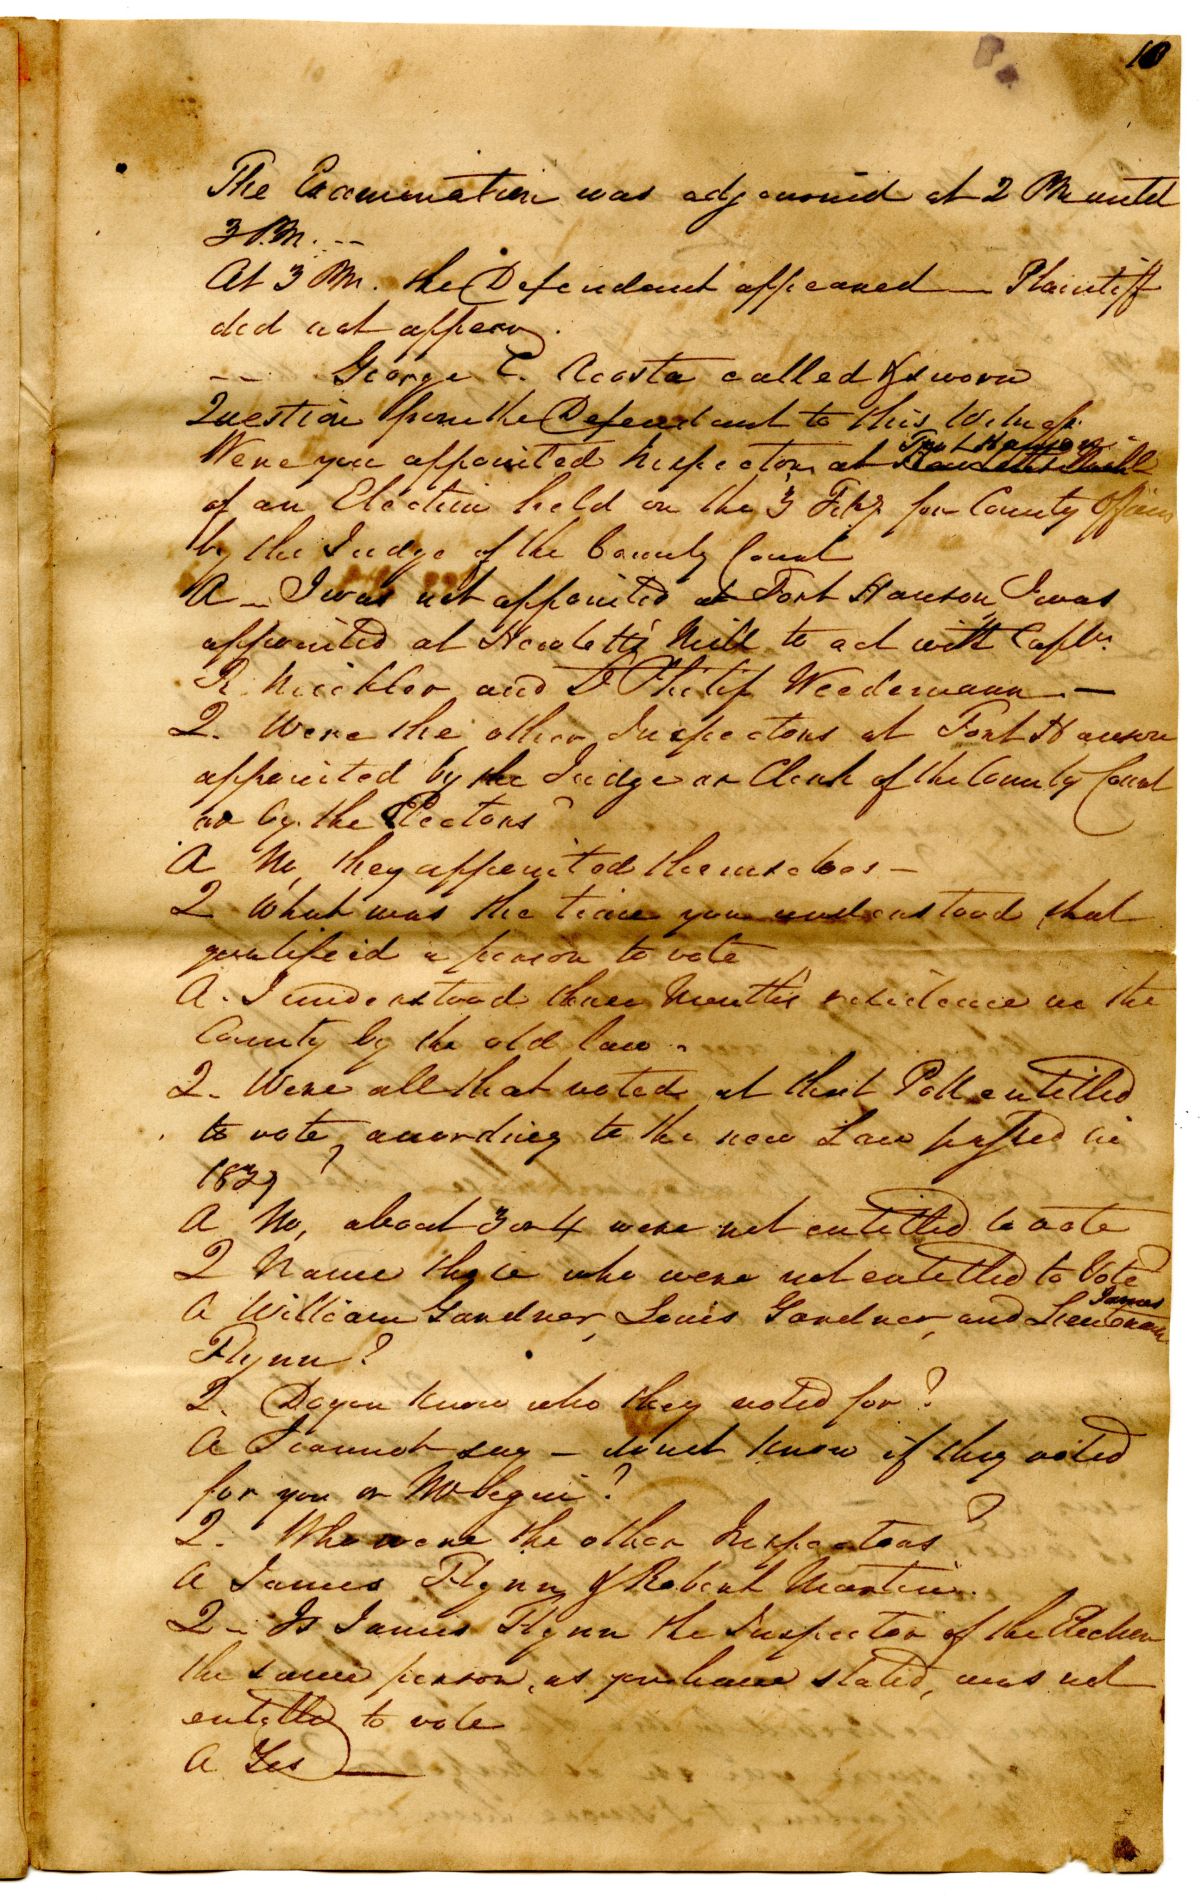 10
The Examination was adjourned at 2 PM until
3 P.M. --
At 3 PM. the Defendant appeared — Plaintiff
did not appear.
-- George C. Acosta called & sworn
Question from the Defendant to this Witness
Fort Hanson
Were you appointed Inspector at
of an Election held on the 3 Feby for County Officers
by the Judge of the County Court
A — I was not appointed at Fort Hanson, I was
appointed at Hewletts Mill to act with Captn.
R. Mickler and D Philip Weedemann —
Q. Were the other Inspectors at Fort Hanson
appointed by the Judge or Clerk of the County Court
or by the Electors?
A No, they appointed themselves —
Q What was the time you understood that
qualifeid a person to vote
A. I understood three Months residence in the
County by the old law.
Q. Were all that voted at that Poll entitled
to vote, according to the new Law passed in
1839?
A No, about 3 or 4 were not entitled to vote
Q Name those who were not entitled to Vote
James
A William Gardner, Louis Gardner, and Lieutenant
Flynn?
Q. Do you know who they voted for?
A I cannot say — do not know if they voted
for you or Mr Segui?
Q. Who were the other Inspectors?
A James Flynn & Robert Martin.
Q — Is James Flynn the Inspector of the Election
the same person, as you have stated, was not
entitled to vote
A Yes —